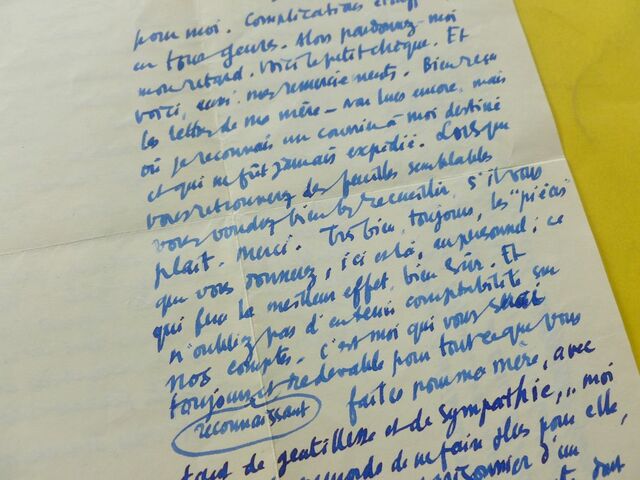 pour moi. Complications
en tous genres. Alors pardonnez-moi
mon retard. Voici le petit chèque. Et
voici, aussi mes remerciements. Bien reçu
les lettres de ma mère – non lues encore, mais
où je reconnais un courrier à moi destiné
et qui ne fût jamais expédié. Lorsque
vous retrouverez des feuilles semblables
vous voudrez bien les recueillir, s'il vous
plait. Merci. Très bien, toujours, les "pièces
que vous donnez, ici et là, au personnel; ce
qui fera la meilleur effet, bien sûr. Et
n'oubliez pas d'en tenir comptabilité sur
nos comptes. C'est moi qui vous serai
toujours et redevable pour tout ce que vous
reconnaissant faites pour ma mère, avec
tant de gentillesse et de sympathie, .. moi
de ne faire plus pour elle,
prisonnier d'un